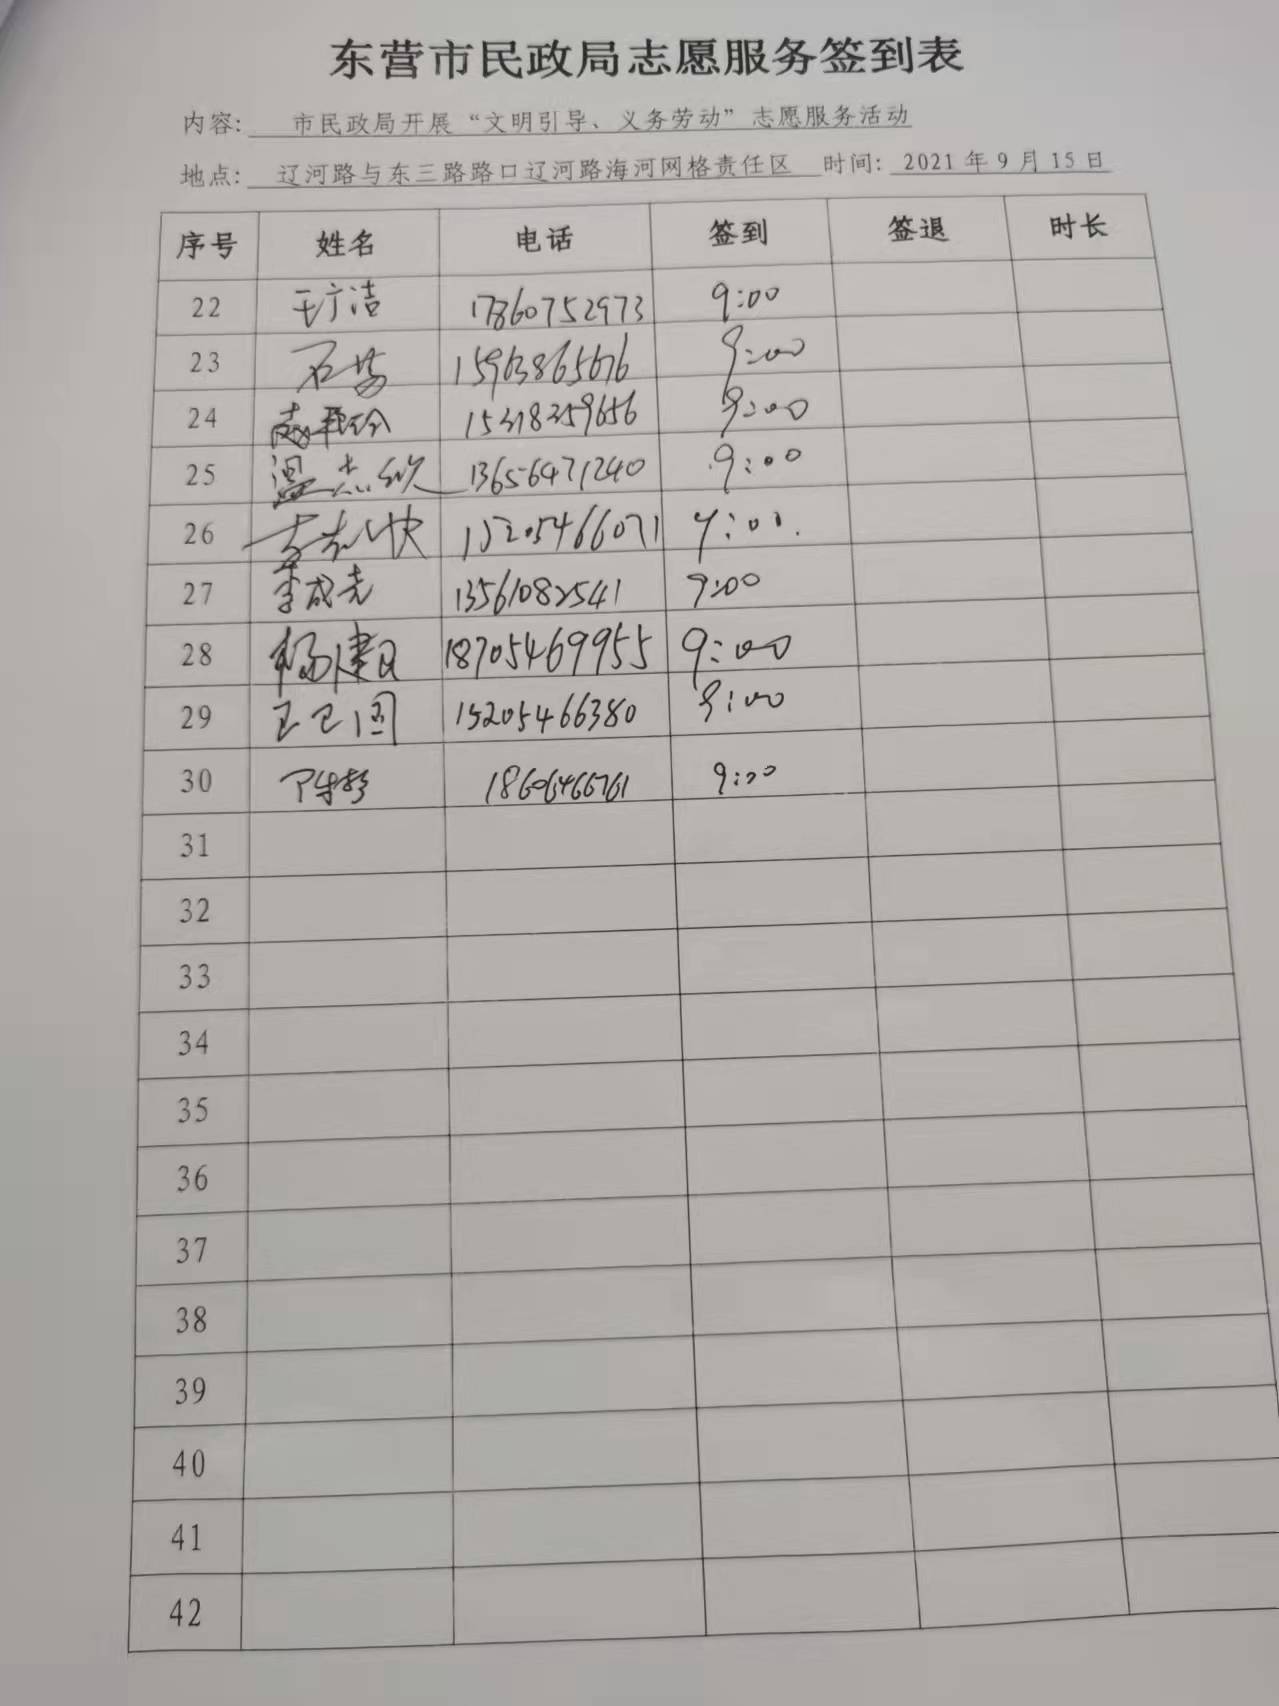 东营市民政局志愿服务签到表
内容: 市民政局开展“文明引导、义务劳动”志愿服务活动
地点: 辽河路与东三路路口辽河路海河网格责任区 时间: 2021 年 9 月 15 日
序号 姓名 电话 签到 签退 时长
22 于广洁 17860752973 9:00
23 15963865676 9:00
24 15318259656 9:00
25 温杰 13656471240 9:00
26 15205466071 9:00
27 李成亮 13561082541 9:00
28 杨建 18705469955 9:00
29 王卫国 15205466380 9:00
30 18606466761 9:00
31
32
33
34
35
36
37
38
39
40
41
42